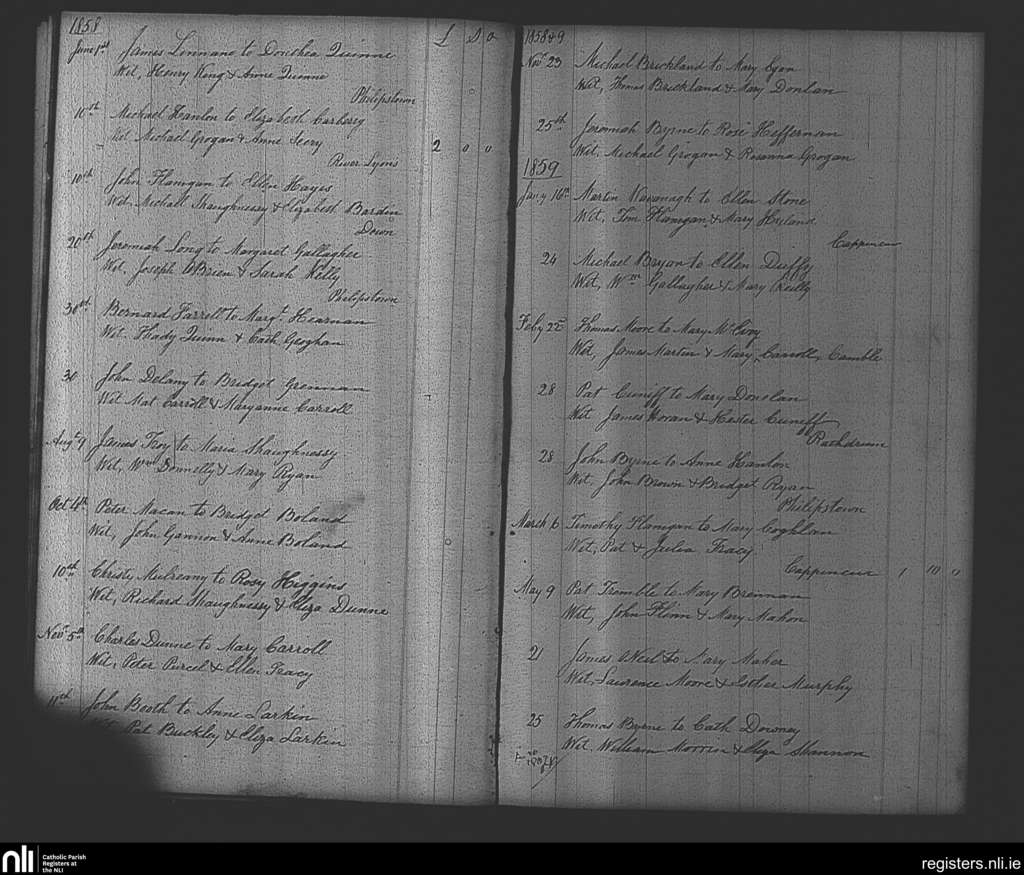 1858
£ S D
June 1st James Linnane to Dorothea Quinne
Wit, Henry King & Anne Dunne
Philipstown
10th Michael Hanlon to Elizabeth Carberry
Wit Michael Grogan & Anne
2 0 0
River Lyons
10th John Flanigan to Ellen Hayes
Wit Michael Shaughnessy & Elizabeth Bardin
Down
20th Jeremiah Long to Margaret Gallagher
Wit, Joseph OBrien & Sarah Kelly
Philipstown
30th Bernard Farrell to Margt Hearnan
Wit Thady Quinn & Cath Geoghan
30 John Delany to Bridget Grennan
Wit Mat Carroll & Maryanne Carroll
Augt 9 James Troy to Maria Shaughnessy
Wit, Wm Donnelly & Mary Ryan
Oct 4th Peter Macan to Bridget Boland
Wit, John Gannon & Anne Boland
10th Christy Mulreany to Rosy Higgins
Wit, Richard Shaughnessy & Eliza Dunne
Novr 5th Charles Dunne to Mary Carroll
Wit, Peter Purcel & Ellen Tracy
11th John Booth to Anne Larkin
Pat Buckley & Eliza Larkin
1858 & 9
Novr 23 Michael Brickland to Mary Egan
Wit, Thomas Brickland & Mary Donlan
25th Jeremiah Byrne to Rose Heffernan
Wit, Michael Grogan & Rosanna Grogan
1859
Jany 16th Martin Kavanagh to Ellen Stone
Wit, Tom Flanigan, & Mary Hyland
Cappincur
24 Michael Bryan to Ellen Duffy
Wit, Wm Gallagher & Mary Reilly
Feby 22nd Thomas Moore to Mary McEvoy
Wit, James Martin & Mary Carroll, Camble
28 Pat Cuniff to Mary Donolan
Wit James Horan & Hester Cuneff
Rathdrum
28 John Byrne to Anne Hanlon
Wit, John Brown & Bridget Ryan
Philipstown
March 6 Timothy Flanigan to Mary Coghlan
Wit, Pat & Julia Tracy
Cappincur 1 10 0
May 9 Pat Tremble to Mary Brennan
Wit, John Flinn & Mary Mahon
21 James ONeil to Mary Maher
Wit, Lawrence Moore & Esther Murphy
25 Thomas Byrne to Cath Downey
Wit, William Morrin & Eliza Shannon
nli Catholic Parish
Registers at
the NLI
registers.nli.ie